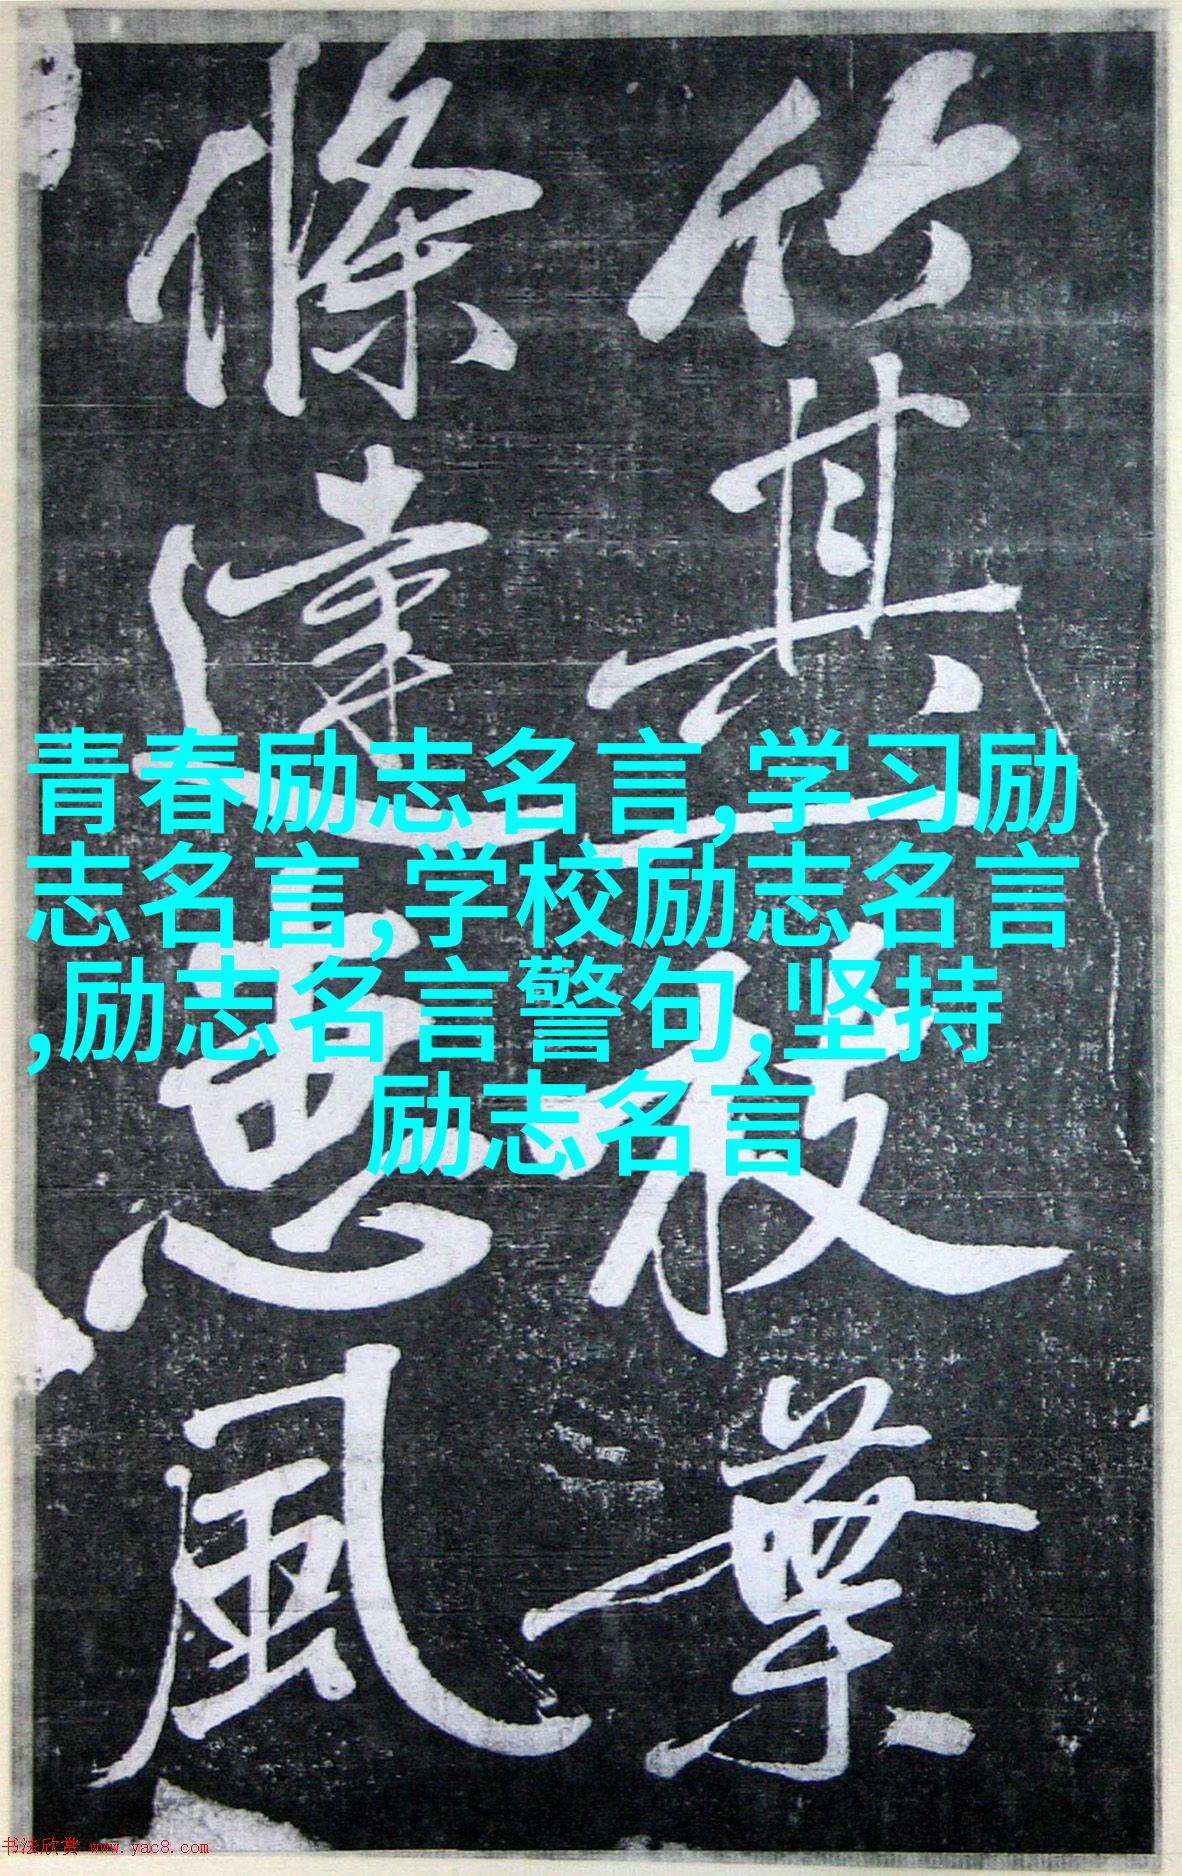 竹其一枝葉
條達惠風
青春励志名言,学习励
志名言,学校励志名言
,励志名言警句,坚持
励志名言
书法欣赏 www.yac8.com